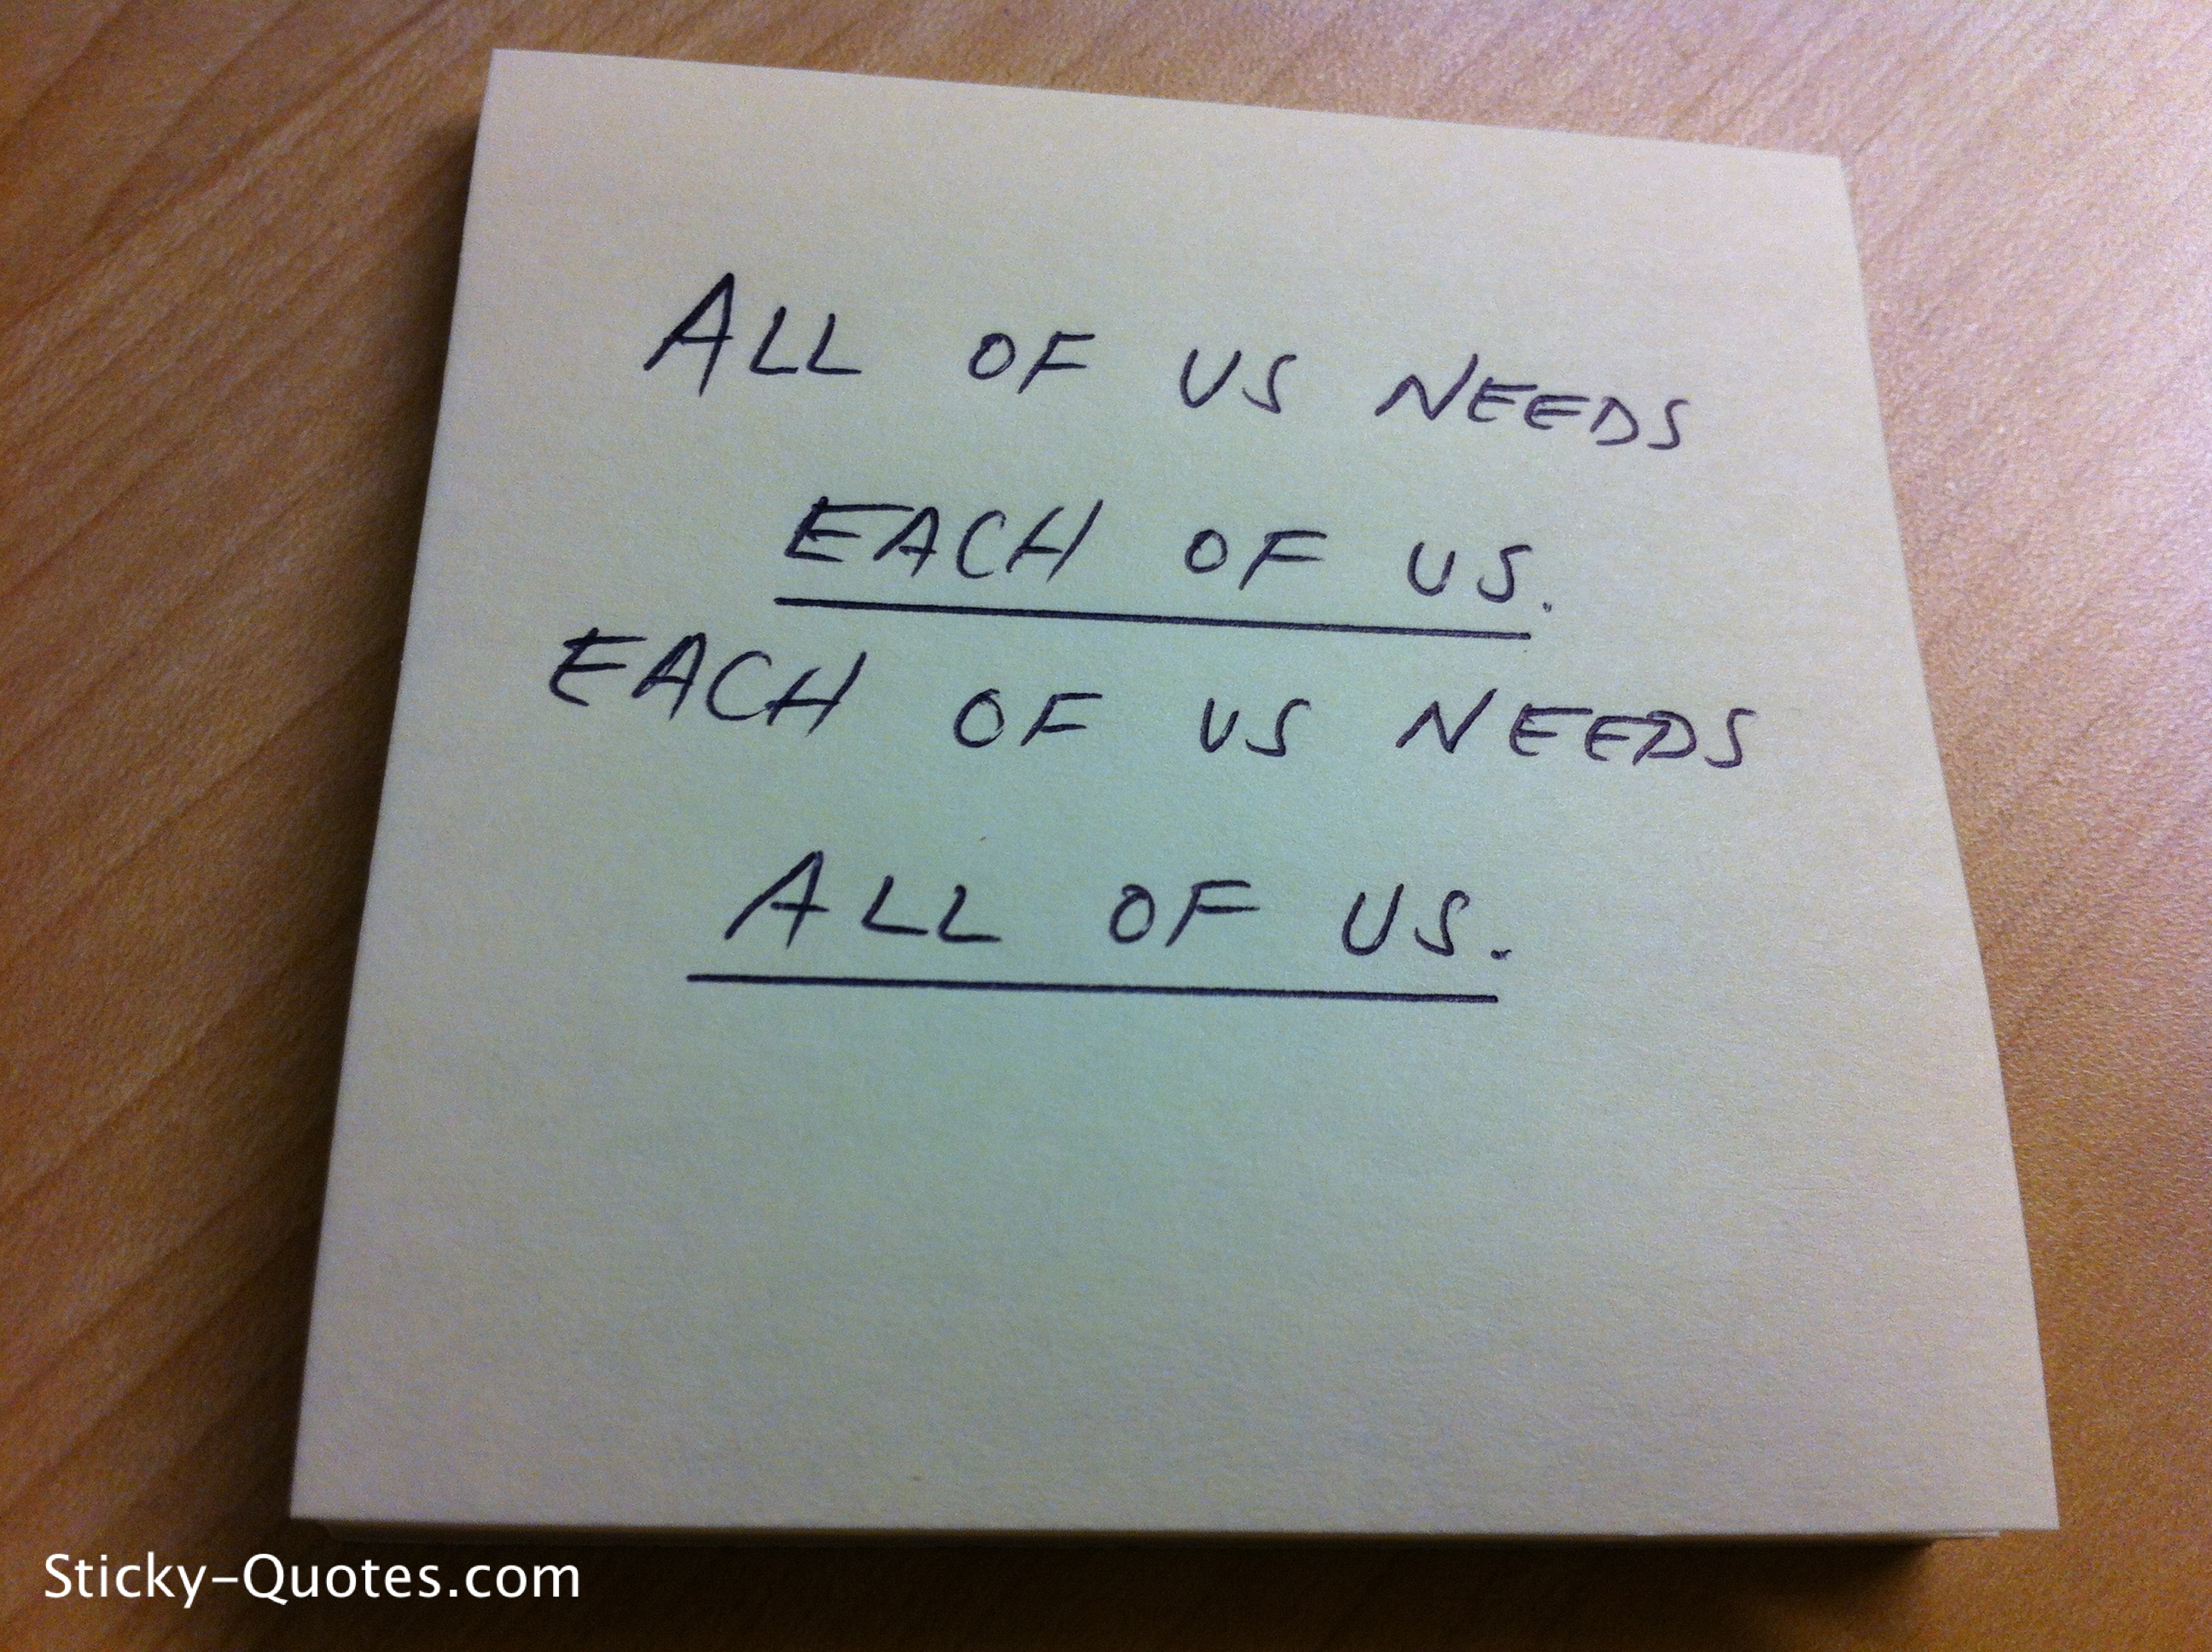 ALL OF US NEEDS
EACH OF US.
EACH OF US NEEDS
ALL OF US.
Sticky-Quotes.com